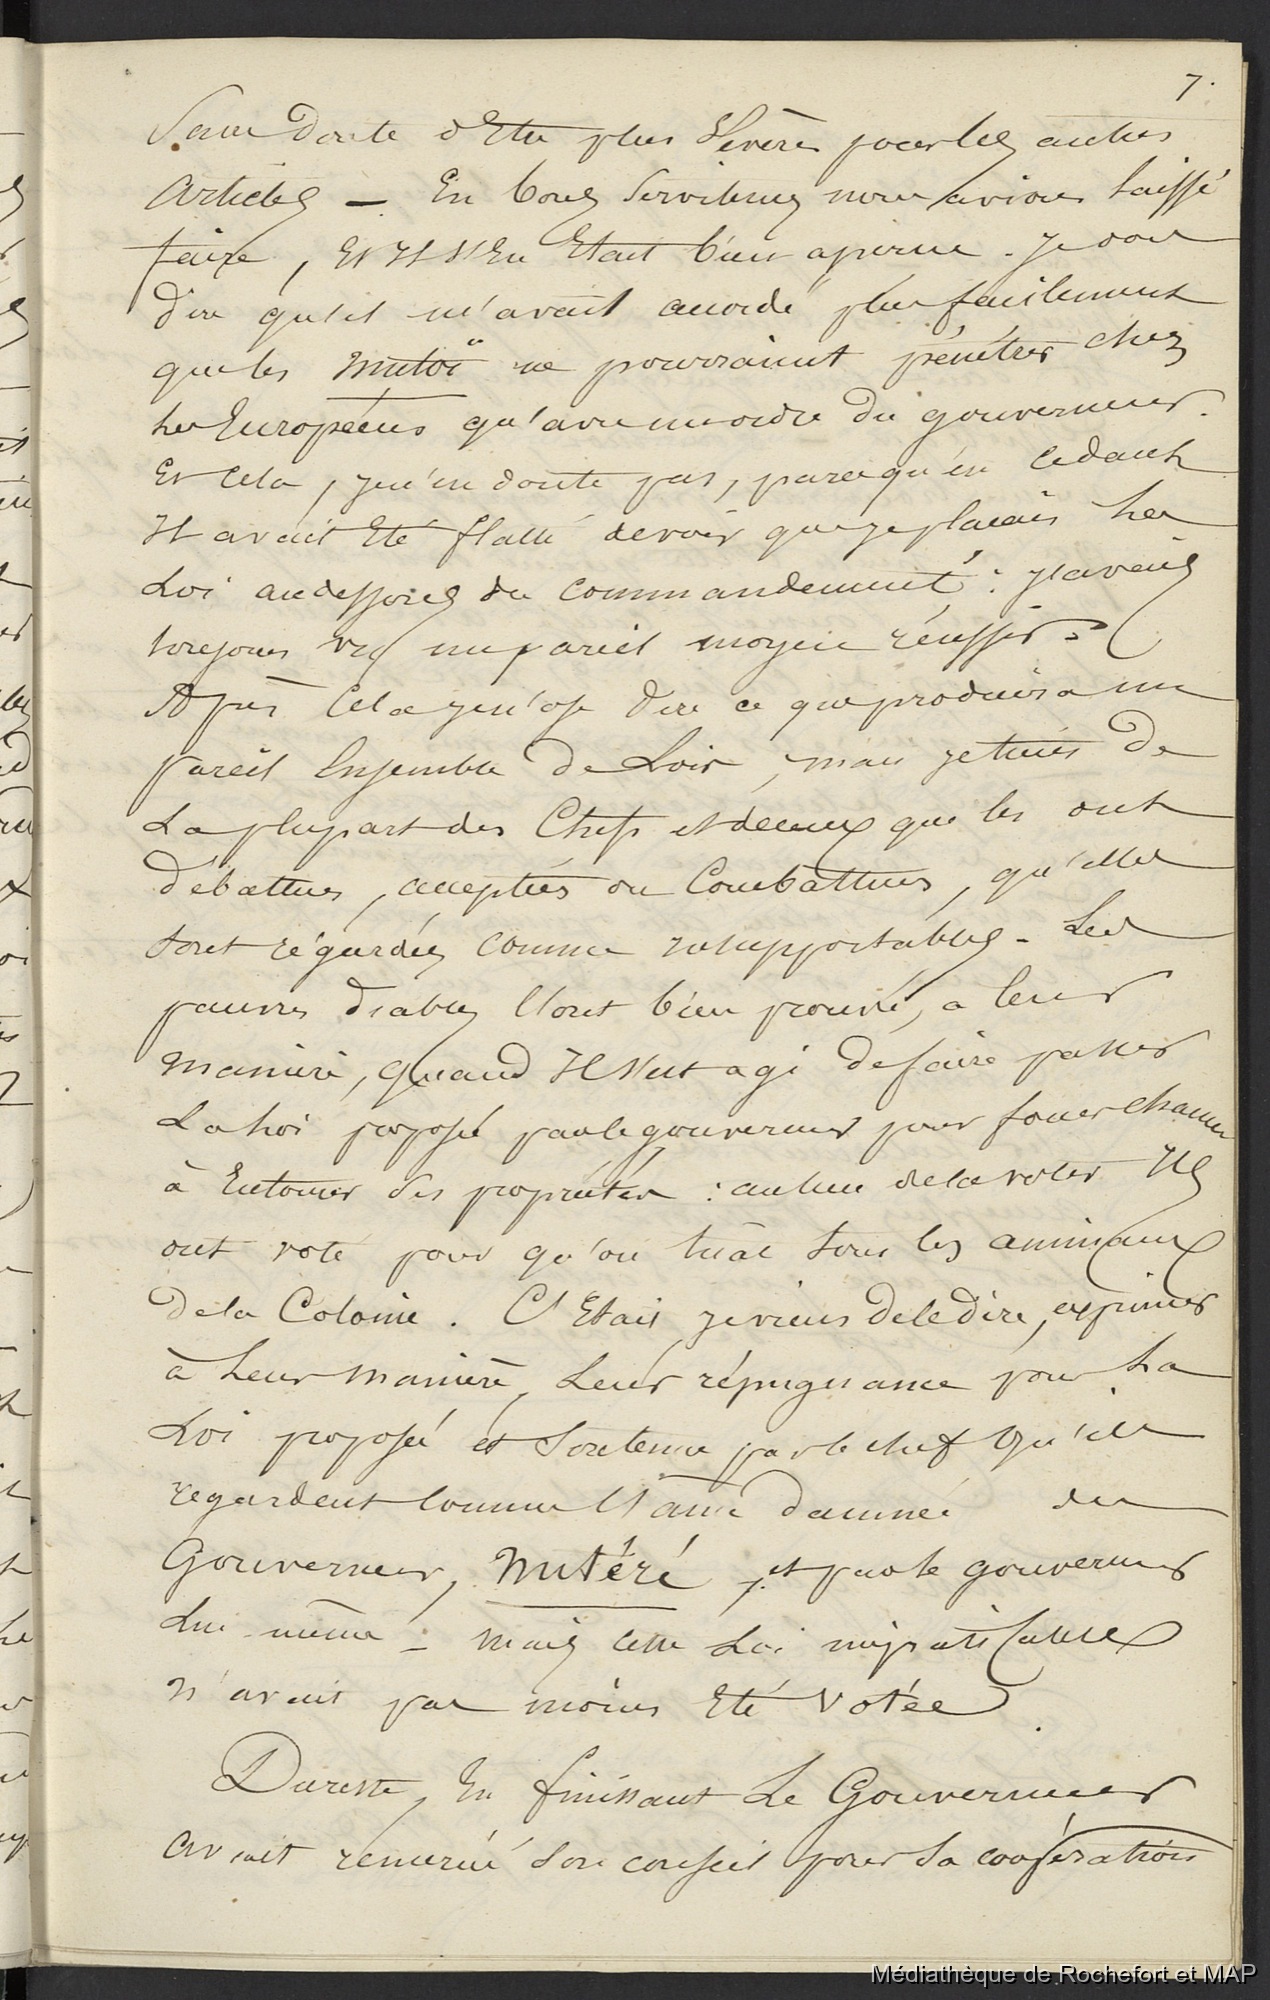 7.
Sans doute d'Etre plus Sévères pour les autres
Articles — En bons Serviteurs nous avions laissé
faire, Et Il S'En Etait bien aperçu. Je dois
dire qu'il m'avait accordé plus facilement
que les mutoï ne pourraient pénétrer chez
les Européens qu'avec un ordre du gouverneur.
Et Cela, je n'en doute pas, parcequ'en Cedant
Il avait Eté flatté de voir que je plaçais Les
Loi audessous du Commandement : j'avais
toujours vu un pareil moyen réussir.
Après Cela je n'ose dire ce que produira un
pareil Ensemble de Lois, mais je tiens de
La plupart des Chefs et de ceux qui les ont
débattues, acceptées ou Combattues, qu'elles
sont régardées comme insupportables. Les
pauvres diables l'ont bien prouvé, a leur
manière, quand Il s'est agi de faire passer
La Loi proposée par le gouverneur pour forcer chacun
à Entourer ses propriétés : au lieu de la voter Ils
ont voté pour qu'on tuât tous les animaux
de la Colonie. C'Etait, je viens de le dire, exprimer
à Leur manière, Leur répugnance pour La
Loi proposée et Soutenue par le chef qu'ils
regardent Comme l'ame damnée du
Gouverneur, Nutéré, et par le gouverneur
Lui-même - mais cette Loi impraticable
n'avait pas moins Eté Votée.
Dureste, En finissant Le Gouverneur
avait remercié son conseil pour sa coopération
Médiathèque de Rochefort et MAP